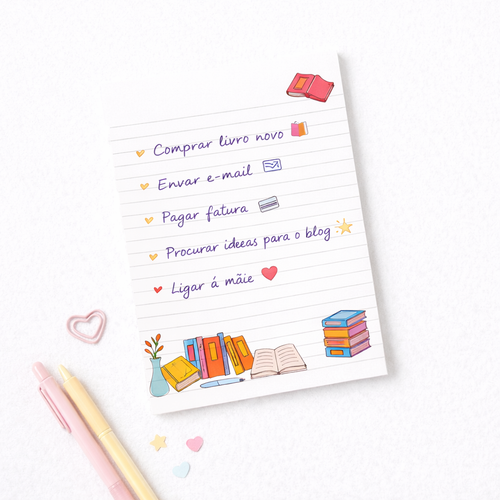 Comprar livro novo
Envar e-mail
Pagar fatura
Procurar ideeas para o blog
Ligar á mãie